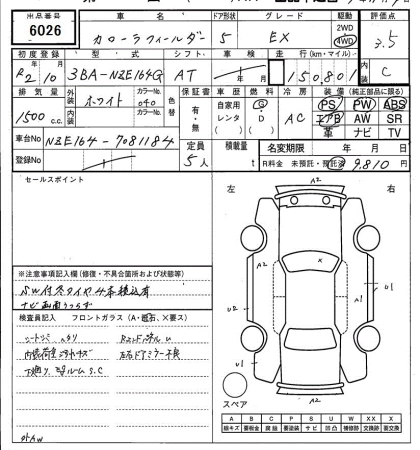 出品番号 車名 ドア形状 グレード 駆動 評価点
6026 カローラフィールダー 5 EX 2WD 4WD 3.5
初度登録 型式 シフト 車検 走行(km・マイル) 内装
R2/10 3BA-NZE164G AT 150,801 C
排気量 外装 ホワイト カラーNo. 040 色替 保証書 車歴 燃料 冷房 装備(純正部品に限る)
1500c.c. 内装 カラーNo. 有・無 自家用 レンタ ( ) G・D ( ) AC PS PW ABS
エアB AW SR
革 ナビ TV
車台No NZE164-7081184 定員 5人 積載量 t 名変期限 年 月 日
登録No R料金 未預託・預託済 9,810円
セールスポイント
左 右
A2
A2 X
A1
U2 U1
U1
A2
スペア
※注意事項記入欄(修復・不具合箇所および状態等)
SW付冬タイヤ4本積込有
ナビ画面うつらず
検査員記入 フロントガラス(A・飛石、×要ス)
シートシミ ヘタリ
内装荷室
下廻り S.C
左右ドアミラー不良
A B C P S U W X XX
線キズ 要板金 腐食 要塗装 サビ 凹凸 補修跡 交換跡 要交換